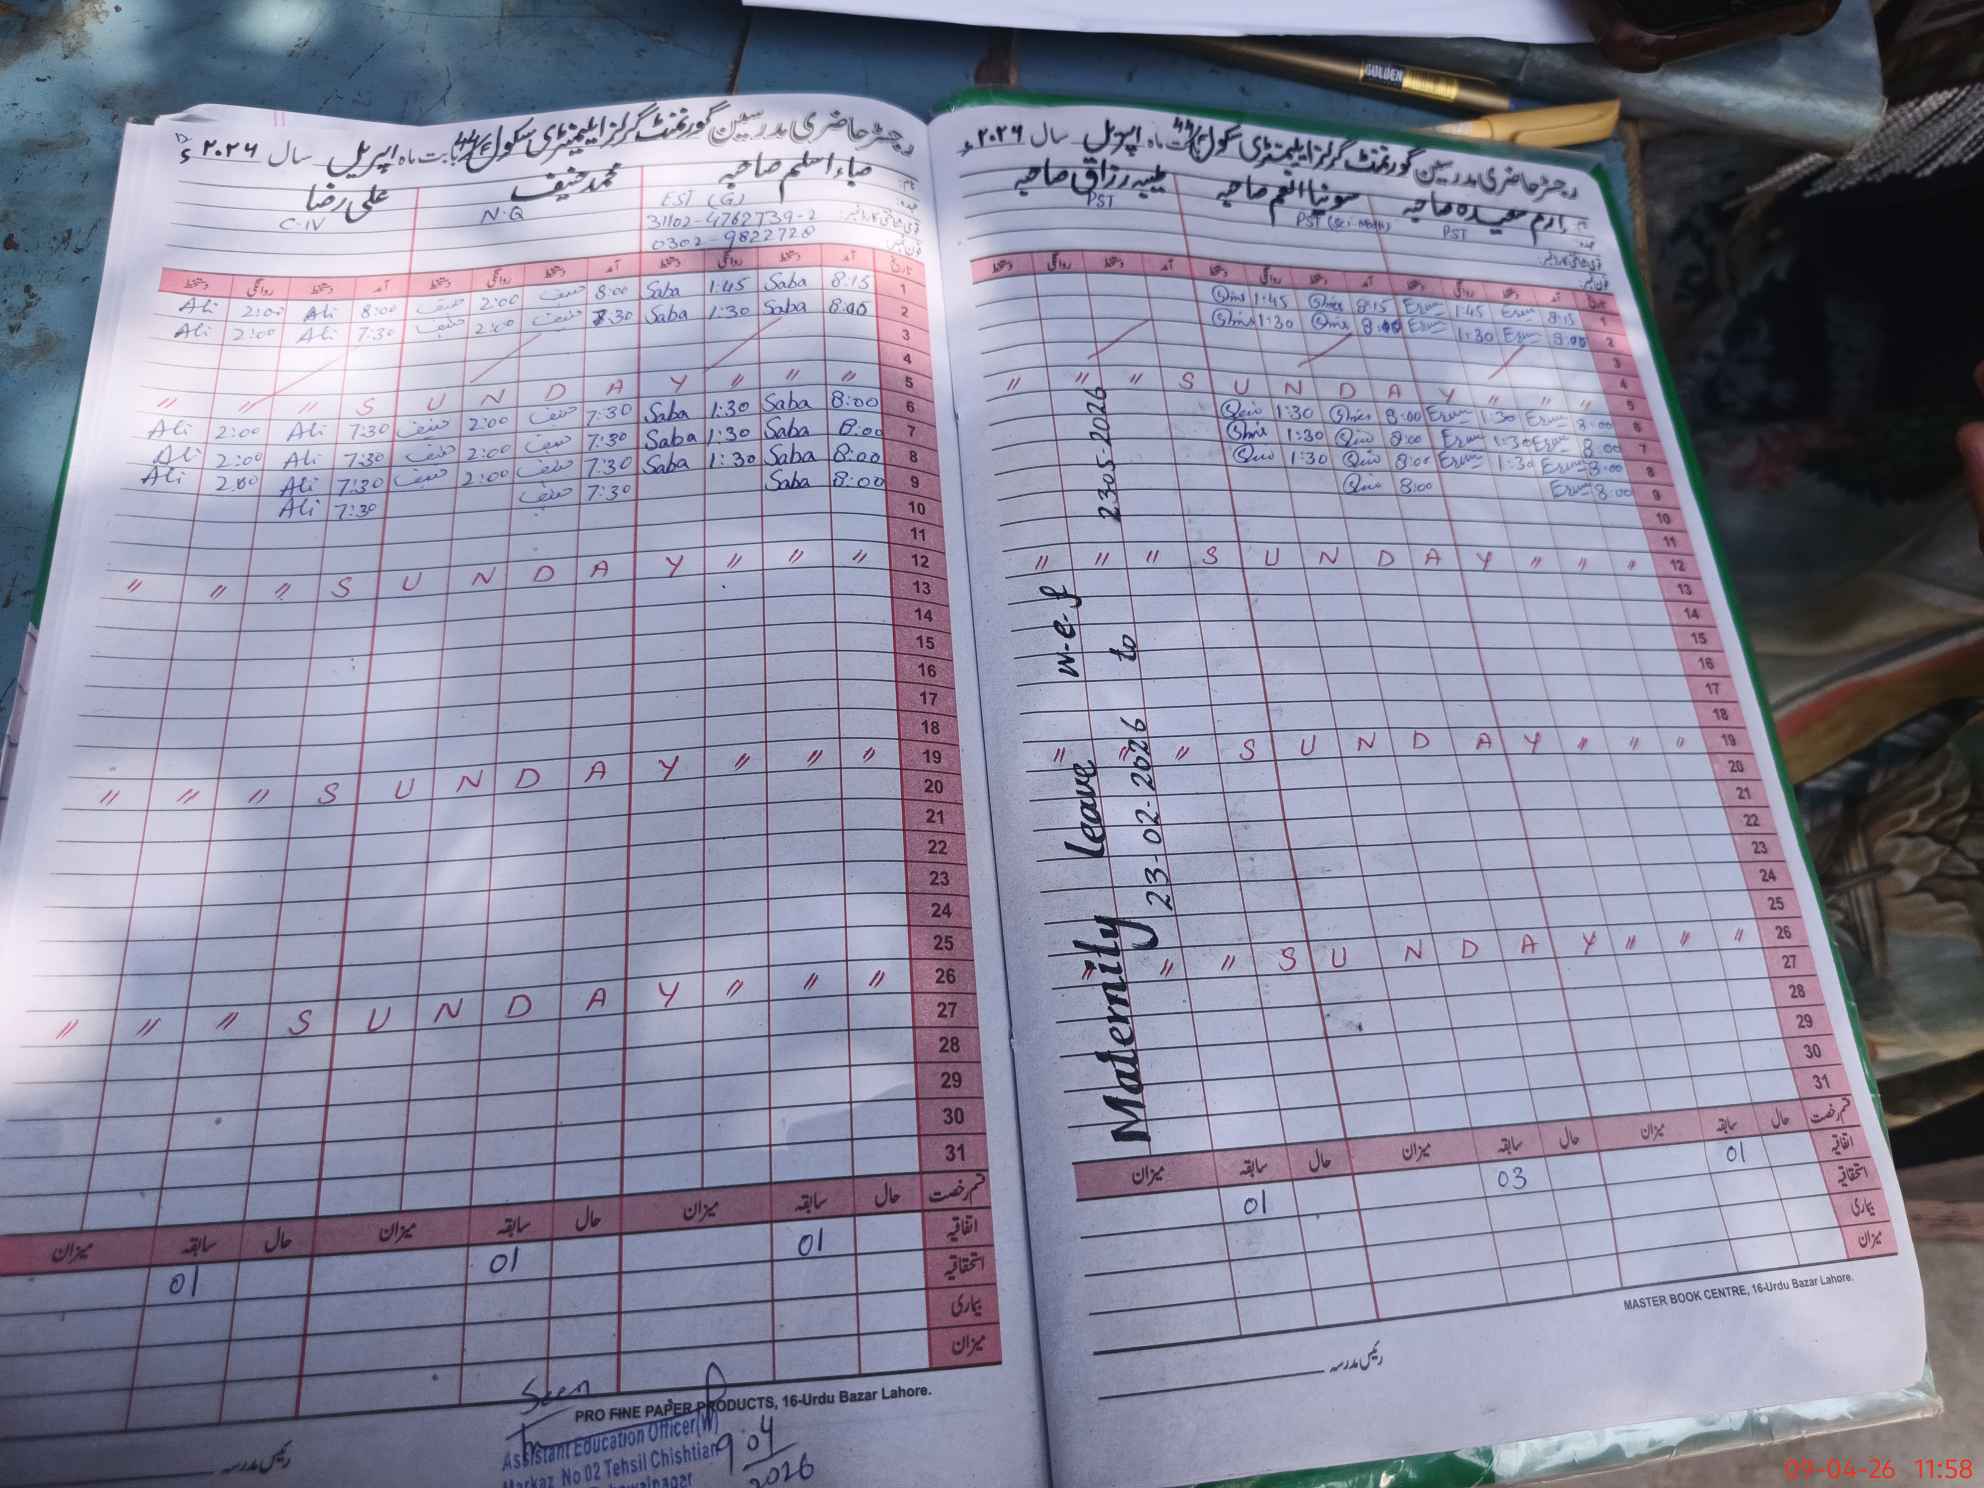 رجسٹر حاضری مدرسین گورنمنٹ گرلز ایلیمنٹری سکول بابت ماہ اپریل سال ۲۰۲۶ء
نام: صباء اسلم صاحبہ محمد حنیف علی رضا
عہدہ: EST (G) N.Q C-IV
31102-4762739-2
0302-9822728
تاریخ آمد دستخط روانگی دستخط آمد دستخط روانگی دستخط آمد دستخط روانگی دستخط
1 8:15 Saba 1:45 Saba 8:00 حنیف 2:00 حنیف 8:00 Ali 2:00 Ali
2 8:00 Saba 1:30 Saba 7:30 حنیف 2:00 حنیف 7:30 Ali 2:00 Ali
3
4
5 " " " S U N D A Y " " "
6 8:00 Saba 1:30 Saba 7:30 حنیف 2:00 حنیف 7:30 Ali 2:00 Ali
7 8:00 Saba 1:30 Saba 7:30 حنیف 2:00 حنیف 7:30 Ali 2:00 Ali
8 8:00 Saba 1:30 Saba 7:30 حنیف 2:00 حنیف 7:30 Ali 2:00 Ali
9 8:00 Saba 7:30 حنیف 7:30 Ali
10
11
12 " " " S U N D A Y " " "
13
14
15
16
17
18
19 " " " S U N D A Y " " "
20
21
22
23
24
25
26 " " " S U N D A Y " " "
27
28
29
30
31
قسم رخصت حال سابقہ میزان حال سابقہ میزان حال سابقہ میزان
اتفاقیہ 01 01 01
استحقاقیہ
بیماری
میزان
PRO FINE PAPER PRODUCTS, 16-Urdu Bazar Lahore.
رئیس مدرسہ
Seen
Assistant Education Officer(W)
Markaz No 02 Tehsil Chishtian
9.04
2026
رجسٹر حاضری مدرسین گورنمنٹ گرلز ایلیمنٹری سکول بابت ماہ اپریل سال ۲۰۲۶ء
نام: ارم سعیدہ صاحبہ سونیا انعم صاحبہ طیبہ رزاق صاحبہ
عہدہ: PST PST (Sci-Math) PST
تاریخ آمد دستخط روانگی دستخط آمد دستخط روانگی دستخط آمد دستخط روانگی دستخط
1 8:15 Erum 1:45 Erum 8:15 1:45
2 8:00 Erum 1:30 Erum 8:00 1:30
3
4
5 " " " S U N D A Y " " "
6 8:00 Erum 1:30 Erum 8:00 1:30
7 8:00 Erum 1:30 Erum 8:00 1:30
8 8:00 Erum 1:30 Erum 8:00 1:30
9 8:00 Erum 8:00
10
11
12 " " " S U N D A Y " " "
13
14
15
16
17
18
19 " " " S U N D A Y " " "
20
21
22
23
24
25
26 " " " S U N D A Y " " "
27
28
29
30
31
Maternity leave w.e.f
23-02-2026 to 23-05-2026
قسم رخصت حال سابقہ میزان حال سابقہ میزان حال سابقہ میزان
اتفاقیہ 01 03 01
استحقاقیہ
بیماری
میزان
MASTER BOOK CENTRE, 16-Urdu Bazar Lahore.
رئیس مدرسہ
GOLDEN
09-04-26 11:58